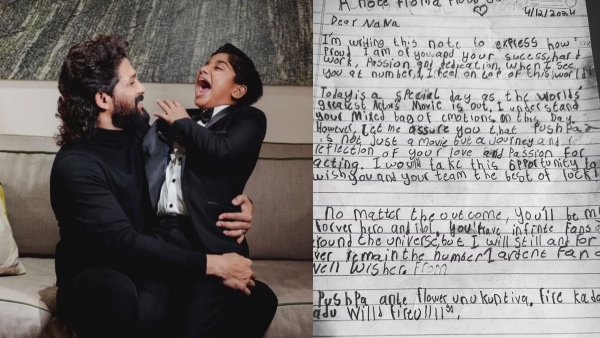 A note
4/12/2024
Dear NaNa
I'm writing this note to express how
Proud I am of you and your sucess, hard
work, Passion and dedication. When I see
you at number 1, I feel on top of this world
Today is a special day as the worlds
greatest Actors Movie is out. I understand
your Mixed bag of emotions on this Day
However, let me assure you that Pushpa 2
is not just a movie but a journey and
reflection of your love and Passion for
acting. I would take this opportunity to
wish you and your team the best of lock!
No matter the outcome, you'll be my
forver hero and idol. You have infinte Fans a
round the universe, but I will still and for
ver remain the number 1 ardent Fan a
well wisher From
Pushpa ante flower unukuntiva, Fire kada
adu Willd fireo!!!!